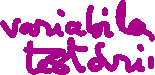 variabila
testării